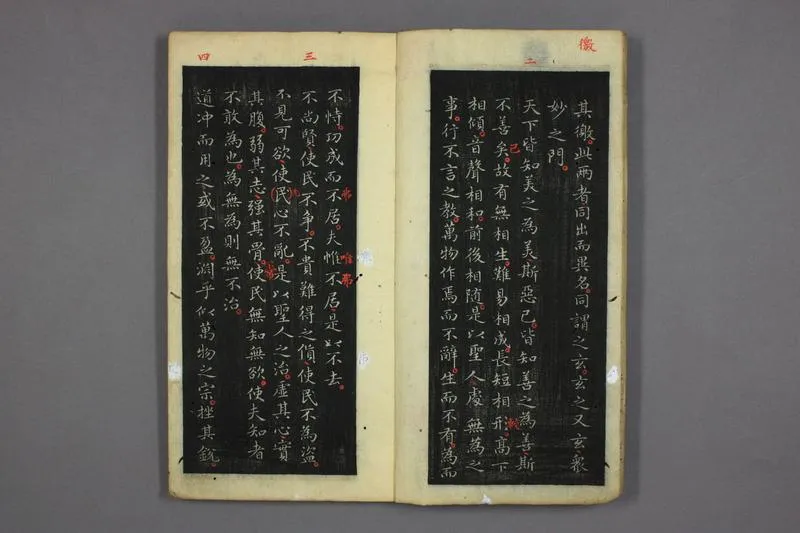 徼
二
其徼此兩者同出而異名同謂之玄玄之又玄衆
妙之門
天下皆知美之為美斯惡已皆知善之為善斯
不善矣故有無相生難易相成長短相形高下
已
相傾音聲相和前後相隨是以聖人處無為之
事行不言之教萬物作焉而不辭生而不有為而
三
四
不恃功成而不居夫惟不居是以不去
弗
唯弗
不尚賢使民不爭不貴難得之貨使民不為盜
不見可欲使民心不亂是以聖人之治虛其心實
其腹弱其志強其骨使民無知無欲使夫知者
不敢為也為無為則無不治
道沖而用之或不盈淵乎似萬物之宗挫其銳